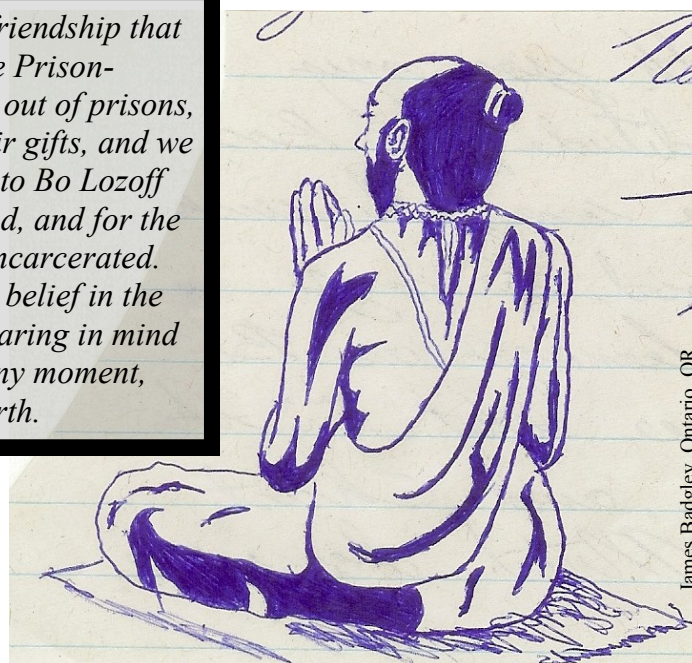 friendship that
Prison-
out of prisons,
gifts, and we
to Bo Lozoff
and for the
incarcerated.
belief in the
in mind
moment,
James Badgley, Ontario, OR